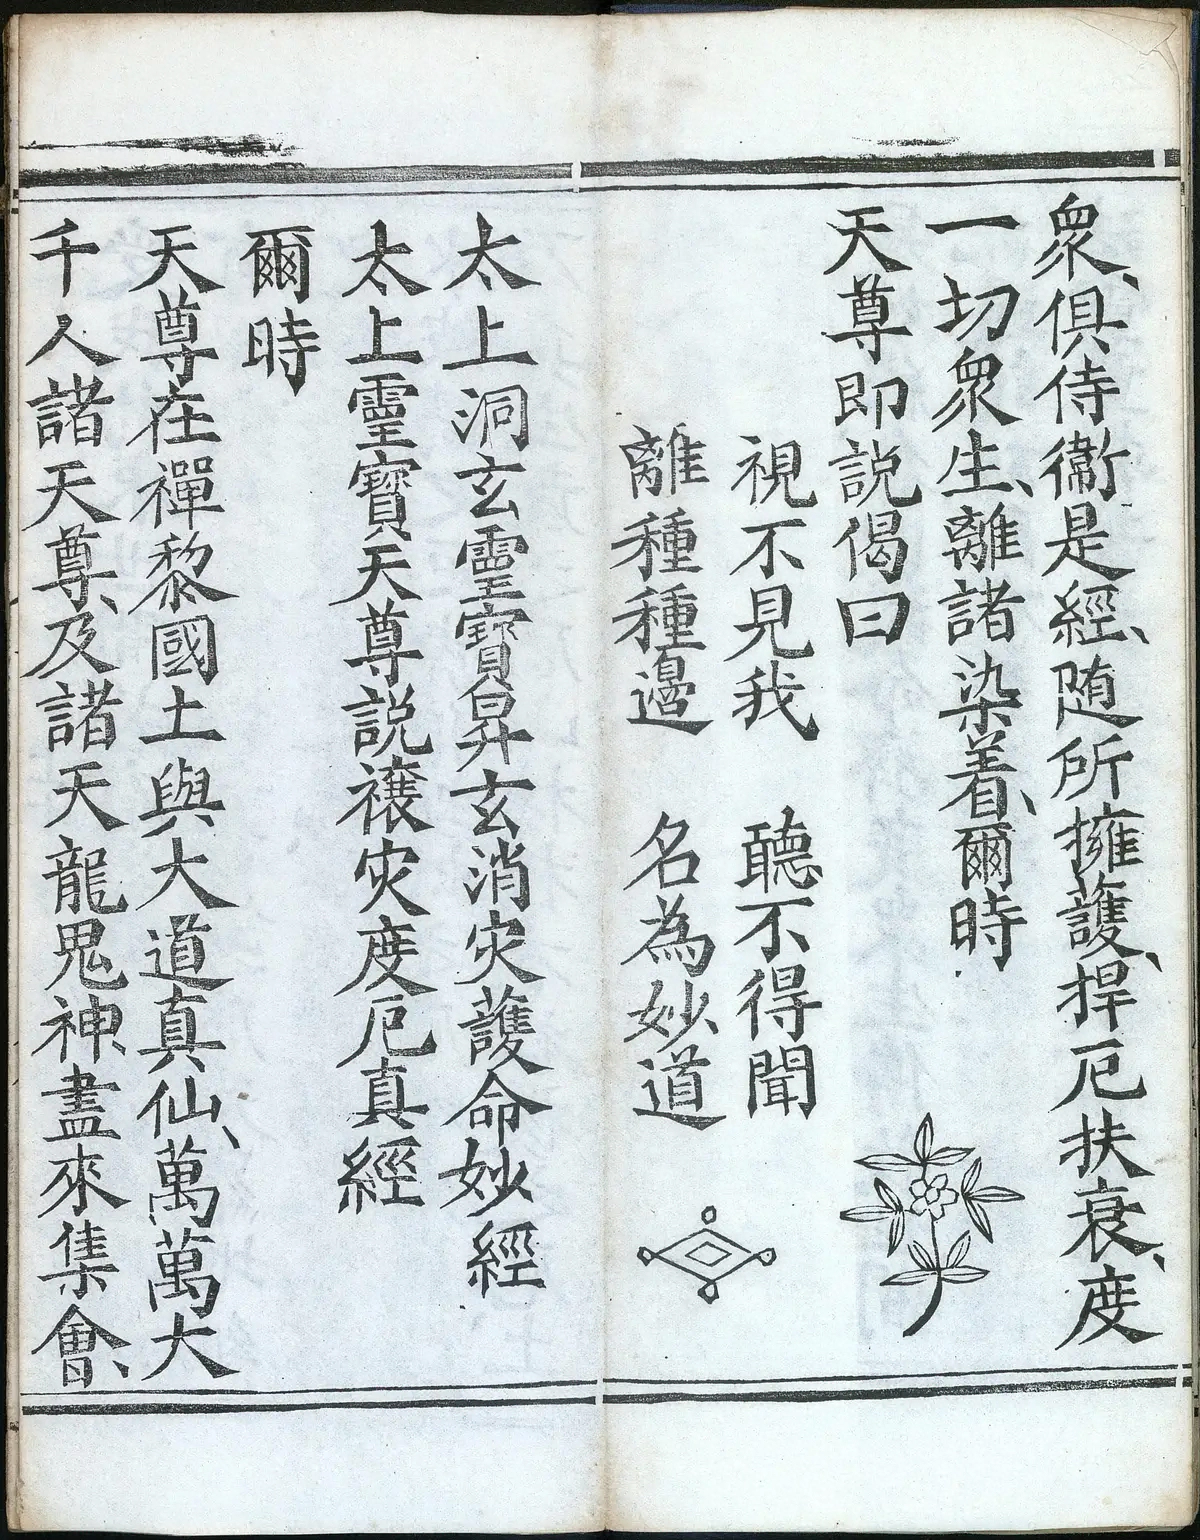 眾、俱侍衞是經、随所擁護、捍厄扶衰、度
一切眾生、離諸染着、爾時
天尊即説偈曰
視不見我　聽不得聞
離種種邊　名為妙道
太上洞玄靈寶昇玄消灾護命妙經
太上靈寶天尊説禳灾度厄真經
爾時
天尊在禪黎國土與大道真仙、萬萬大
千人諸天尊、及諸天龍鬼神、盡來集會、